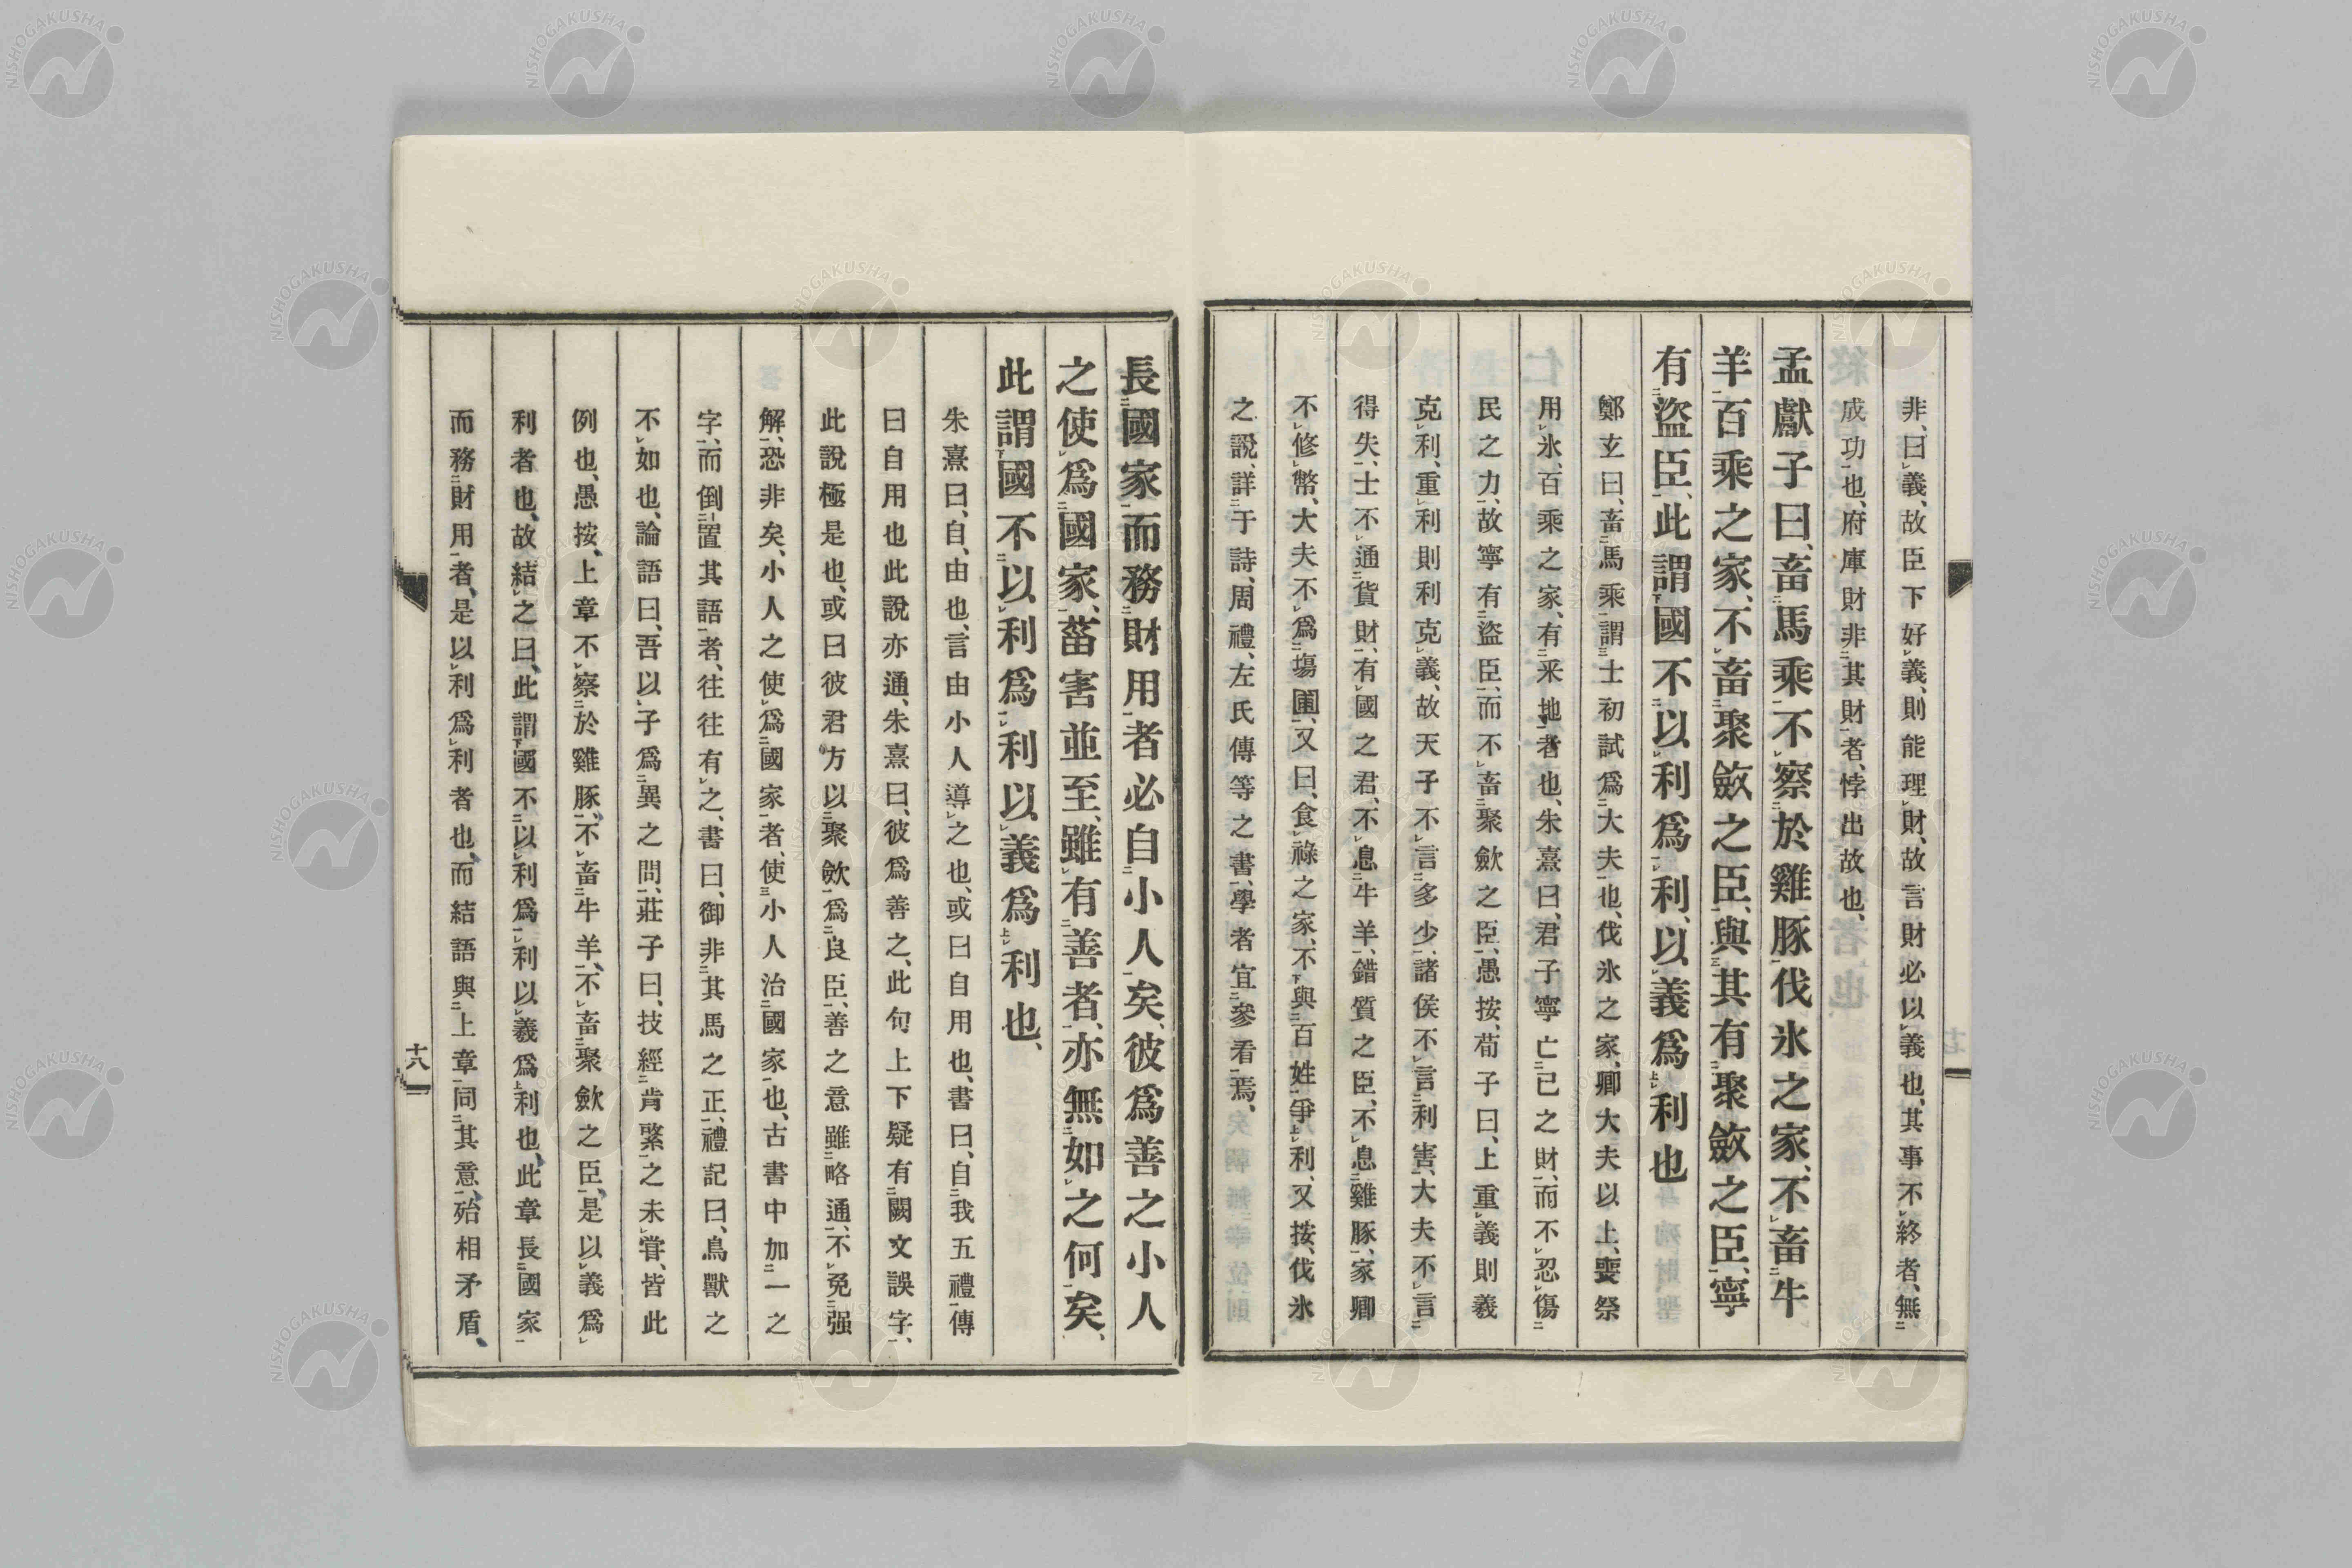 非、曰義、故臣下好義、則能理財、故言財必以義也、其事不終者、無
成功也、府庫財非其財者、悖出故也、
孟獻子曰、畜馬乘、不察於雞豚、伐氷之家、不畜牛
羊、百乘之家、不畜聚斂之臣、與其有聚斂之臣、寧
有盜臣、此謂國不以利爲利、以義爲利也
鄭玄曰、畜馬乘、謂士初試爲大夫也、伐氷之家、卿大夫以上、喪祭
用氷、百乘之家、有采地者也、朱熹曰、君子寧亡己之財、而不忍傷
民之力、故寧有盜臣、而不畜聚歛之臣、愚按、荀子曰、上重義則義
克利、重利則利克義、故天子不言多少、諸侯不言利害、大夫不言
得失、士不通貨財、有國之君、不息牛羊、錯質之臣、不息雞豚、家卿
不修幣、大夫不爲塲圃、又曰、食祿之家、不與百姓爭利、又按、伐氷
之說、詳于詩、周禮、左氏傳等之書、學者宜參看焉、
長國家而務財用者必自小人矣、彼爲善之小人
之使爲國家、菑害並至、雖有善者、亦無如之何矣、
此謂國不以利爲利以義爲利也、
朱熹曰、自、由也、言由小人導之也、或曰自用也、書曰、自我五禮傳
曰自用也此說亦通、朱熹曰、彼爲善之、此句上下疑有闕文誤字、
此說極是也、或曰彼君方以聚歛爲良臣、善之意雖略通、不免强
解、恐非矣、小人之使爲國家者、使小人治國家也、古書中加一之
字、而倒置其語者、往往有之、書曰、御非其馬之正、禮記曰、鳥獸之
不如也、論語曰、吾以子爲異之問、莊子曰、技經肯綮之未甞、皆此
例也、愚按、上章不察於雞豚、不畜牛羊、不畜聚歛之臣、是以義爲
利者也、故結之曰、此謂國不以利爲利以義爲利也、此章長國家
而務財用者、是以利爲利者也、而結語與上章同其意、殆相矛盾、
十八
NISHOGAKUSHA